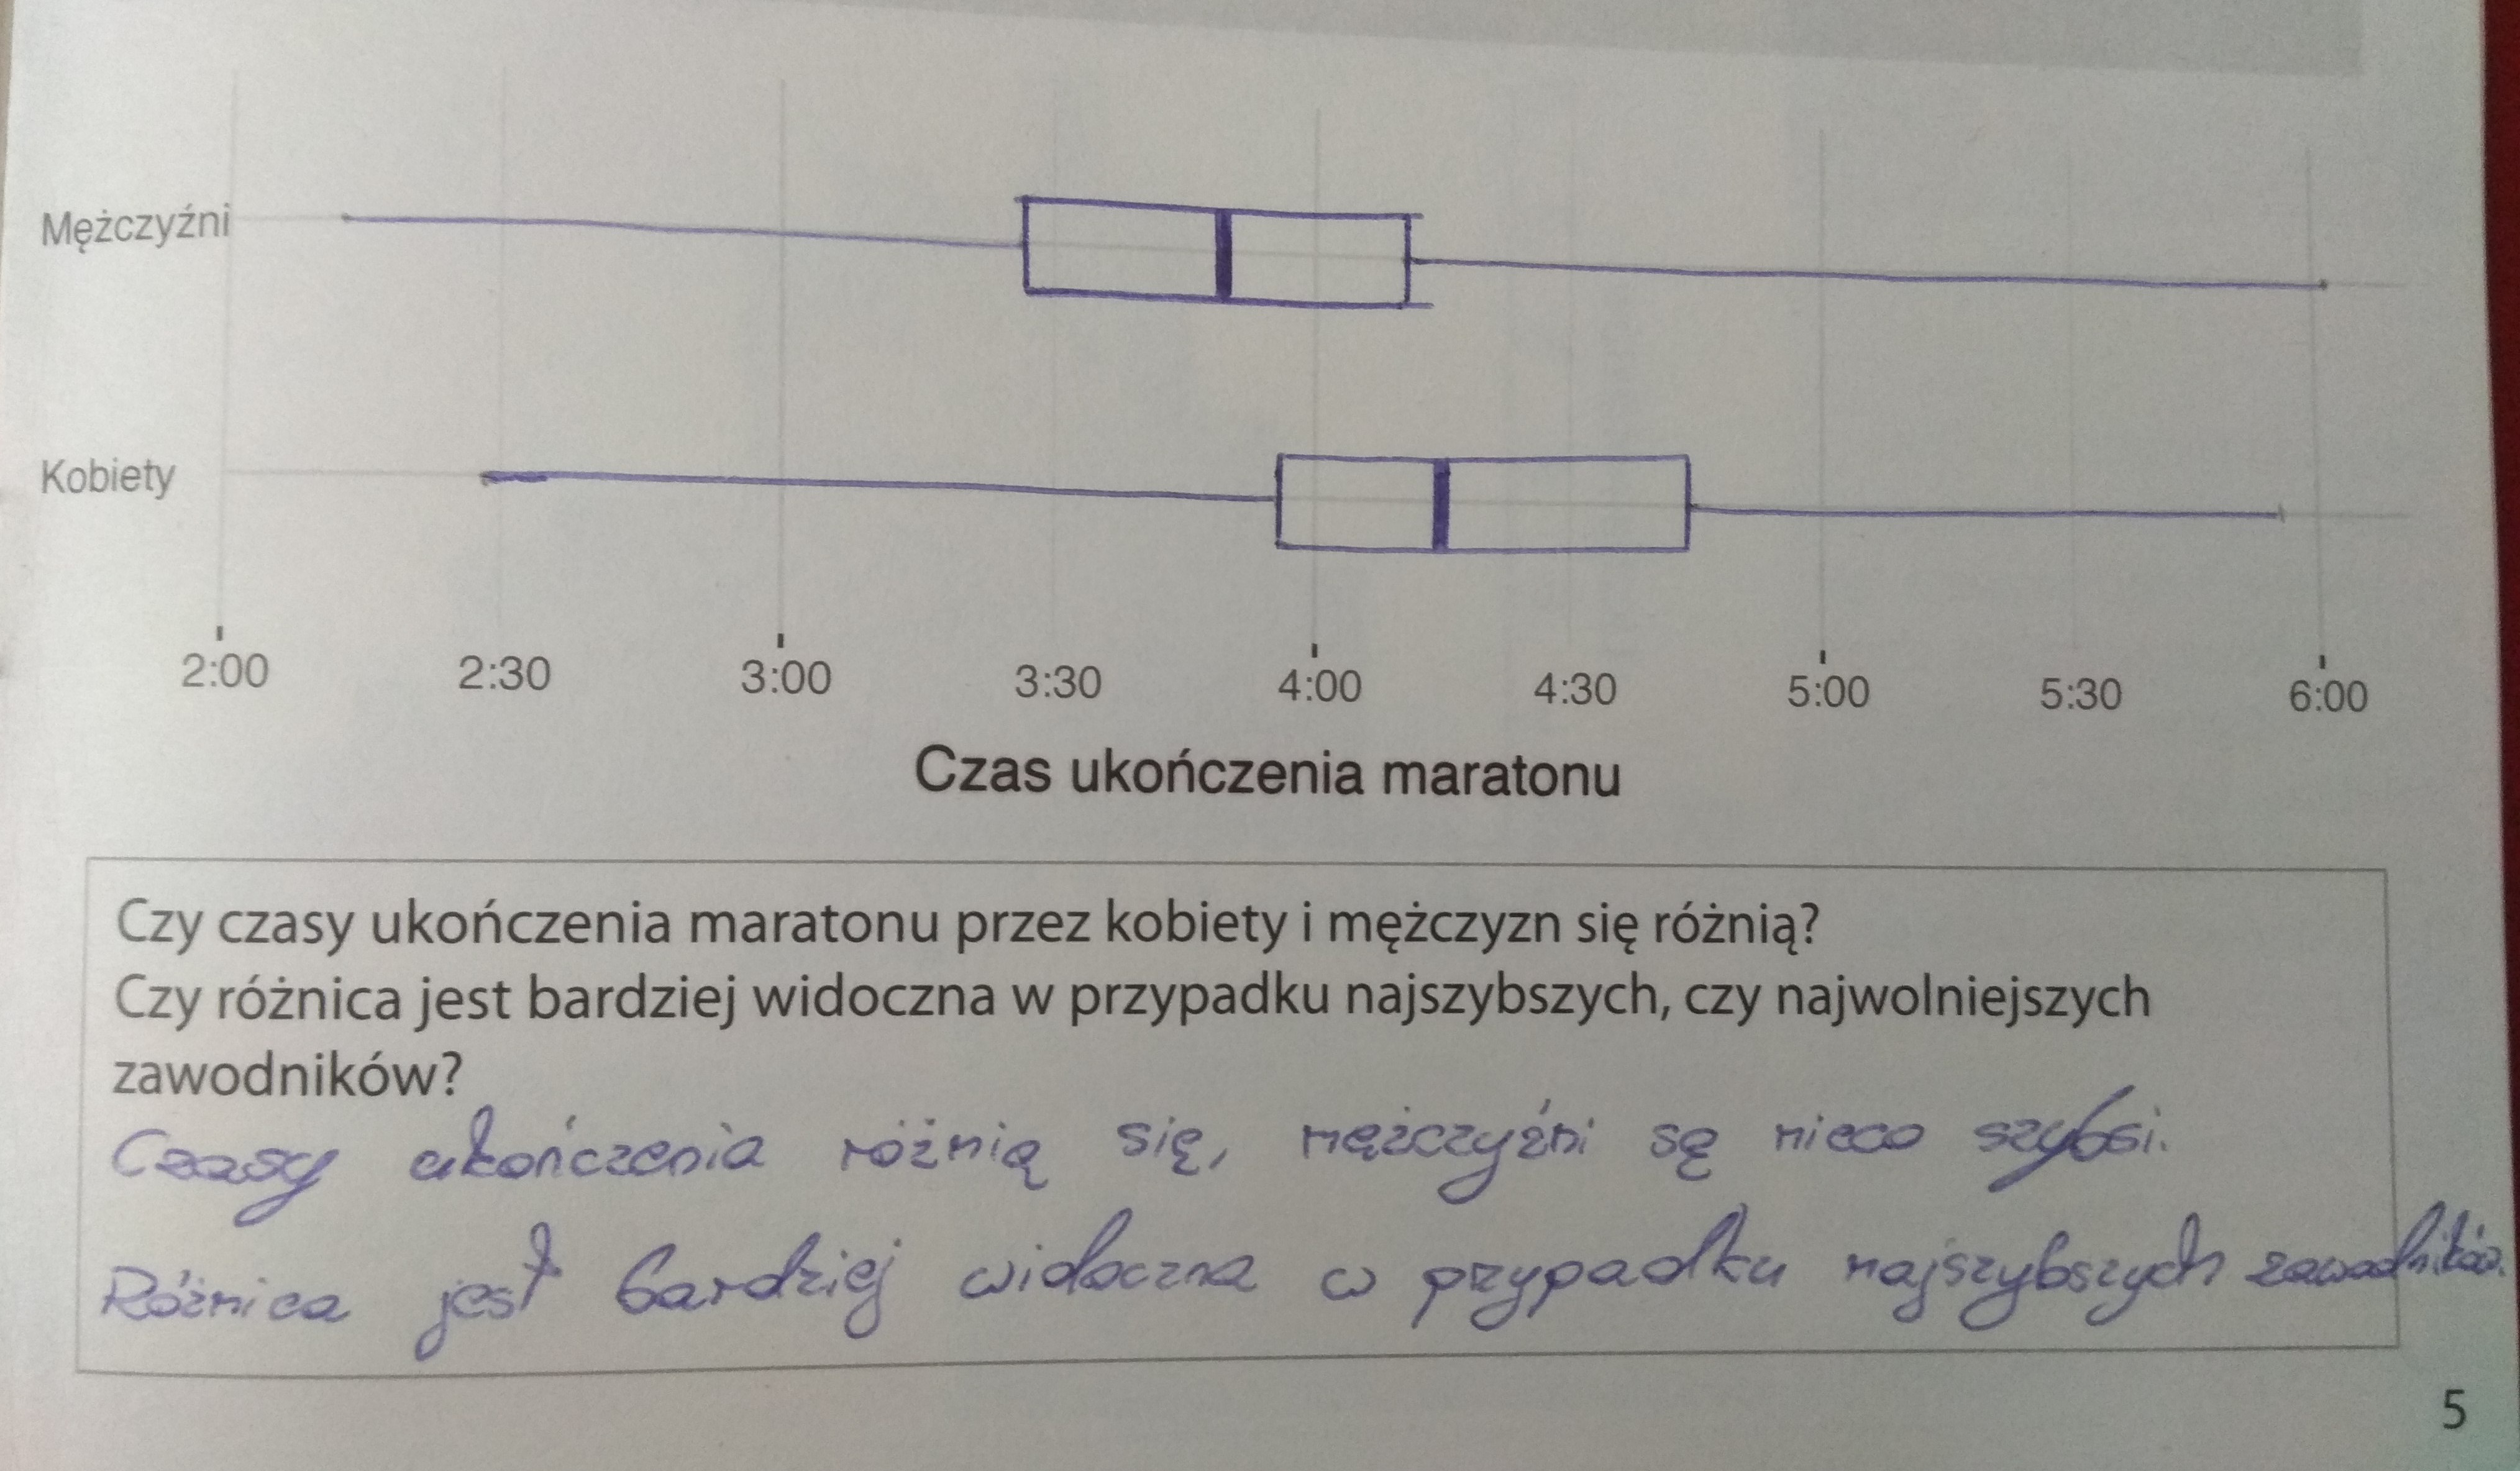 Mężczyźni
Kobiety
2:00 2:30 3:00 3:30 4:00 4:30 5:00 5:30 6:00
Czas ukończenia maratonu
Czy czasy ukończenia maratonu przez kobiety i mężczyzn się różnią?
Czy różnica jest bardziej widoczna w przypadku najszybszych, czy najwolniejszych
zawodników?
Czasy ukończenia różnią się, mężczyźni są nieco szybsi.
Różnica jest bardziej widoczna w przypadku najszybszych zawodników.
5